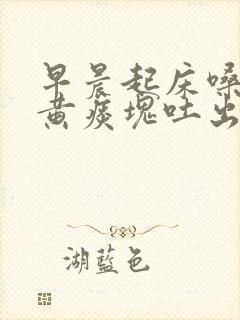 早晨起床嗓
黄痰塊吐出
湖藍色